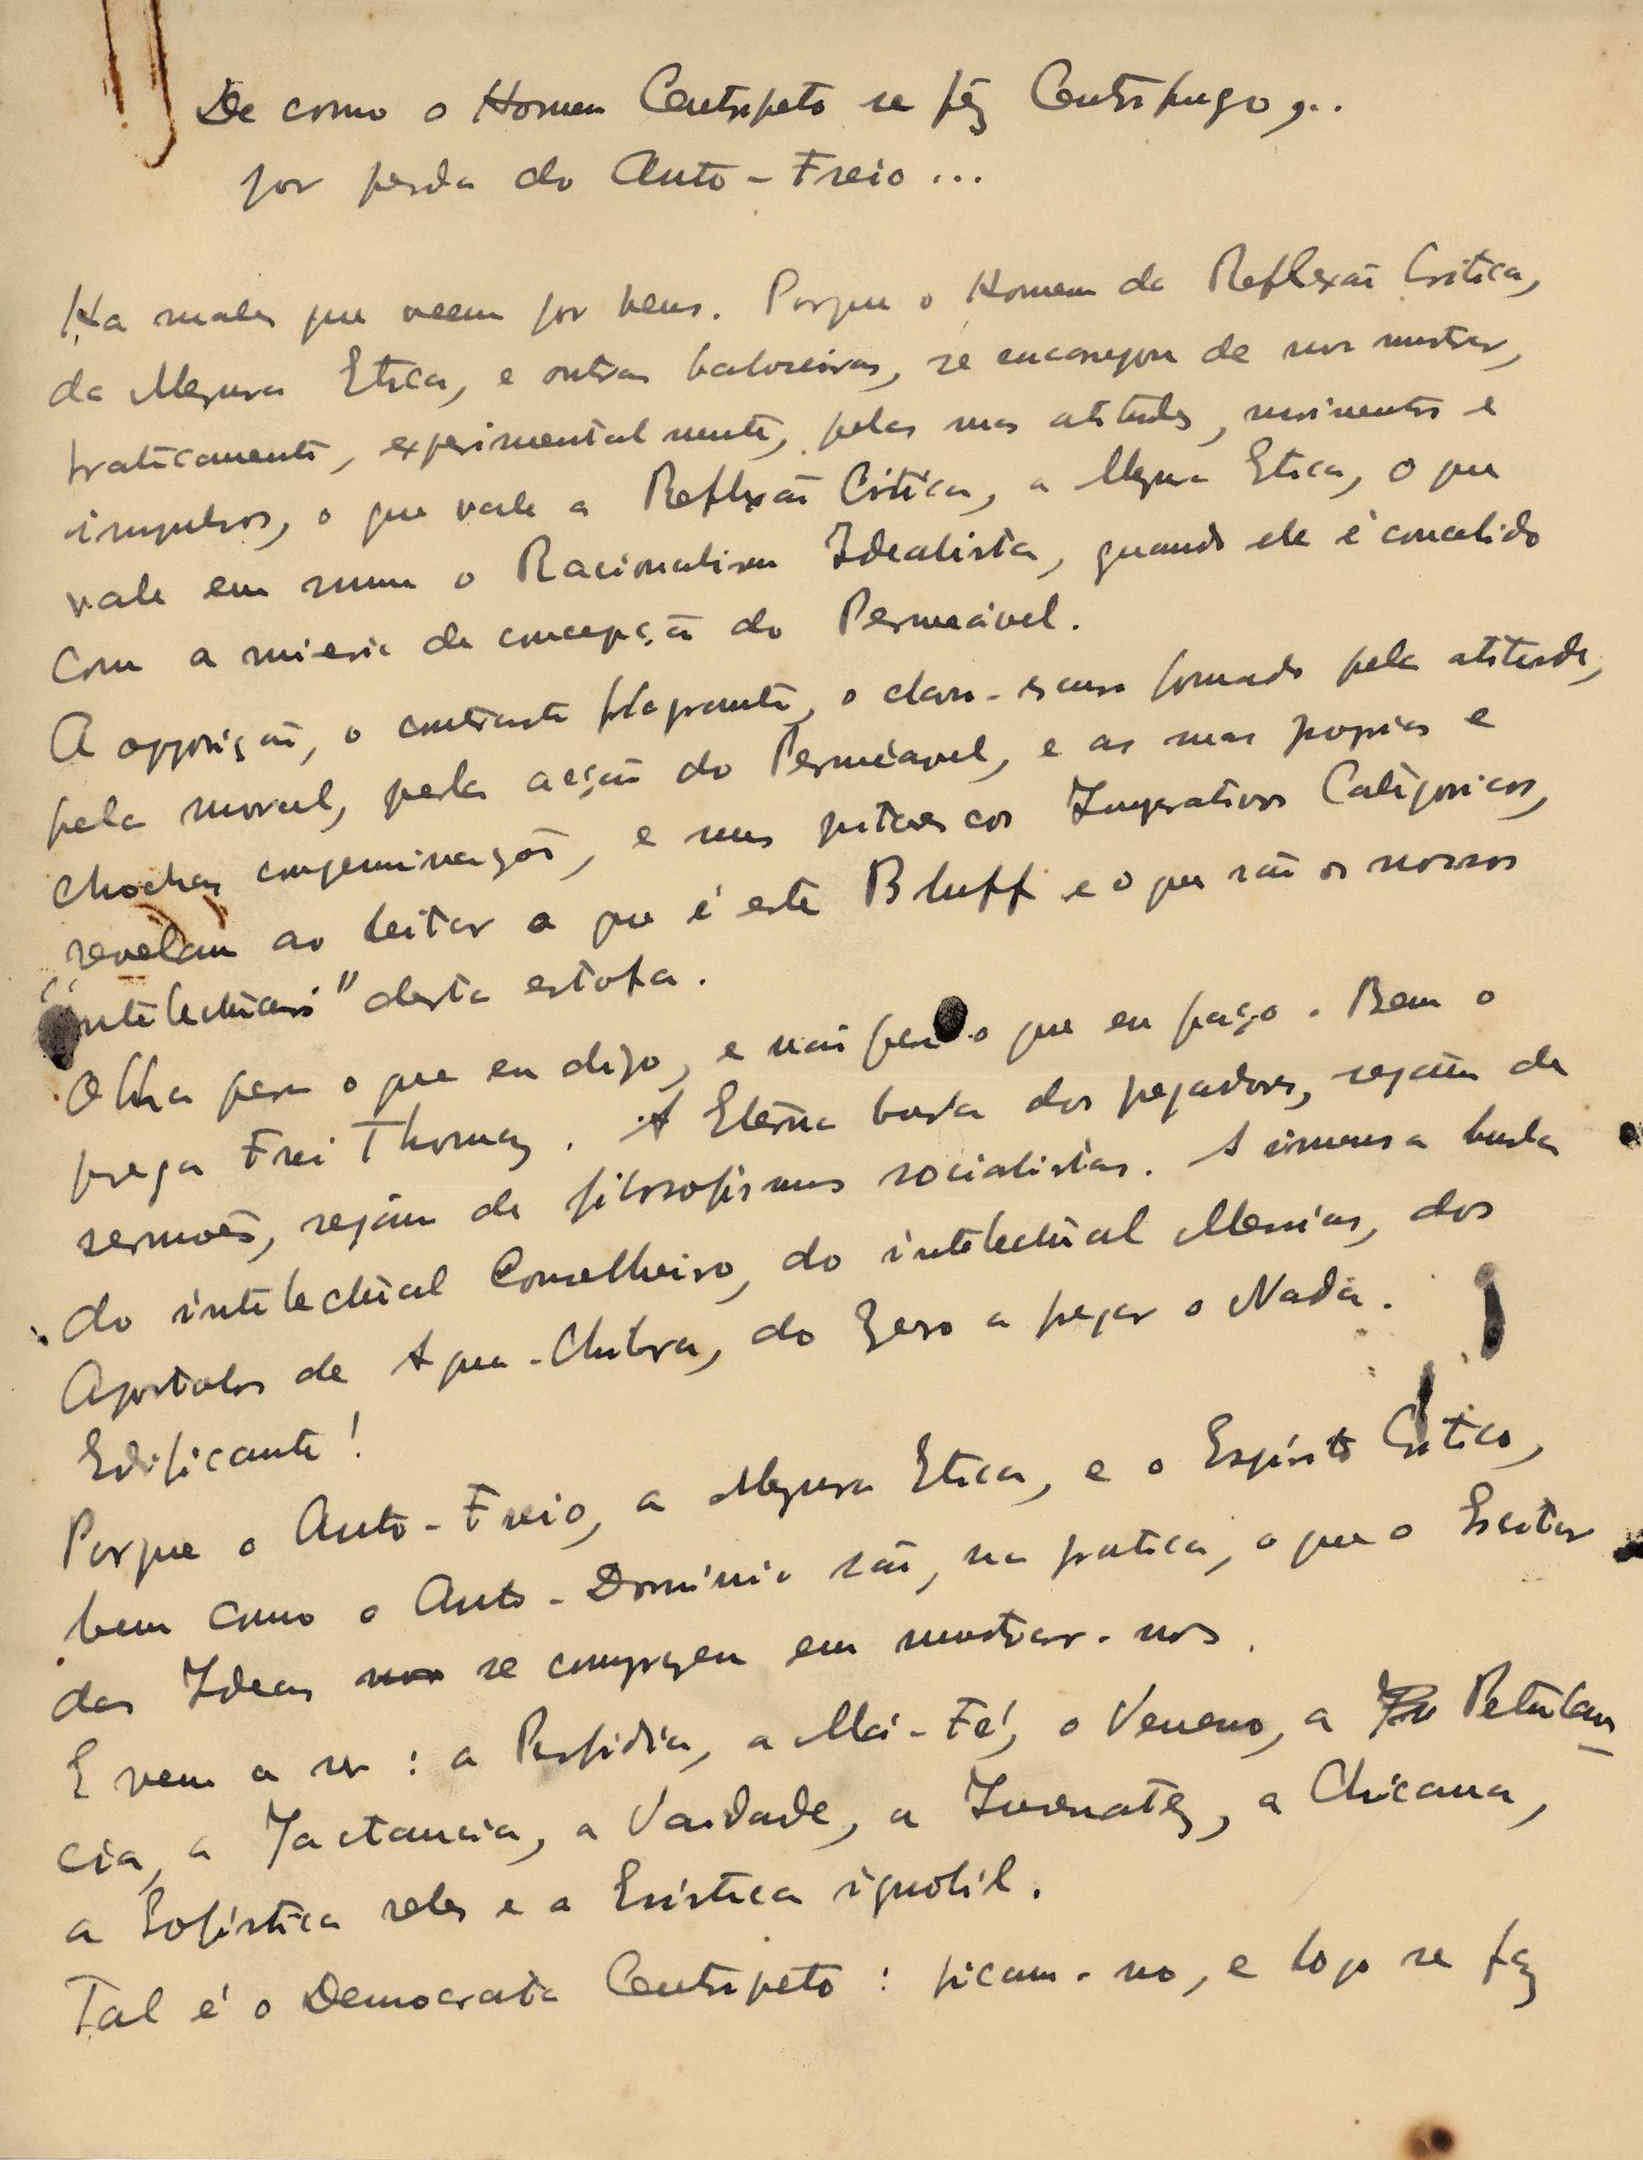 De como o Homem Centripeto se fêz Centrifugo,..
por perda do Auto-Freio...
Ha males que veem por bens. Porque o Homem da Reflexão Critica,
da Mesura Etica, e outras baboseiras, se encarregou de nos mostrar,
praticamente, experimentalmente, pelas suas atitudes, movimentos e
impulsos, o que vale a Reflexão Critica, a Mesura Etica, o que
vale em suma o Racionalismo Idealista, quando ele é concebido
com a miseria de concepção do Permeável.
A opposição, o contraste flagrante, o claro-escuro formado pela atitude,
pela moral, pela acção do Permeavel, e as suas proprias e
chochas congeminações, e seus pitorescos Imperativos Categoricos,
revelam ao leitor o que é este Bluff e o que são os nossos
"intelectuais" desta estofa.
Olha para o que eu digo, e não para o que eu faço. Bem o
prega Frei Thomaz. A Eterna burla dos pregadores, sejam de
sermões, sejam de filosofismos socialistas. A imensa burla
do intelectual Conselheiro, do intelectual Messias, dos
Apostolos de Agua-Chilra, do Zero a pregar o Nada.
Edificante!
Porque o Auto-Freio, a Mesura Etica, e o Espírito Critico,
bem como o Auto-Dominio são, na pratica, o que o Escritor
das Ideas nos se comprazeu em mostrar-nos.
E vem a ser: a Perfidia, a Má-Fé, o Veneno, a Petulan
cia, a Jactancia, a Vaidade, a Insensatez, a Chicana,
a Sofística reles e a Erística ignobil.
Tal é o Democrata Centripeto: picam-no, e logo se faz